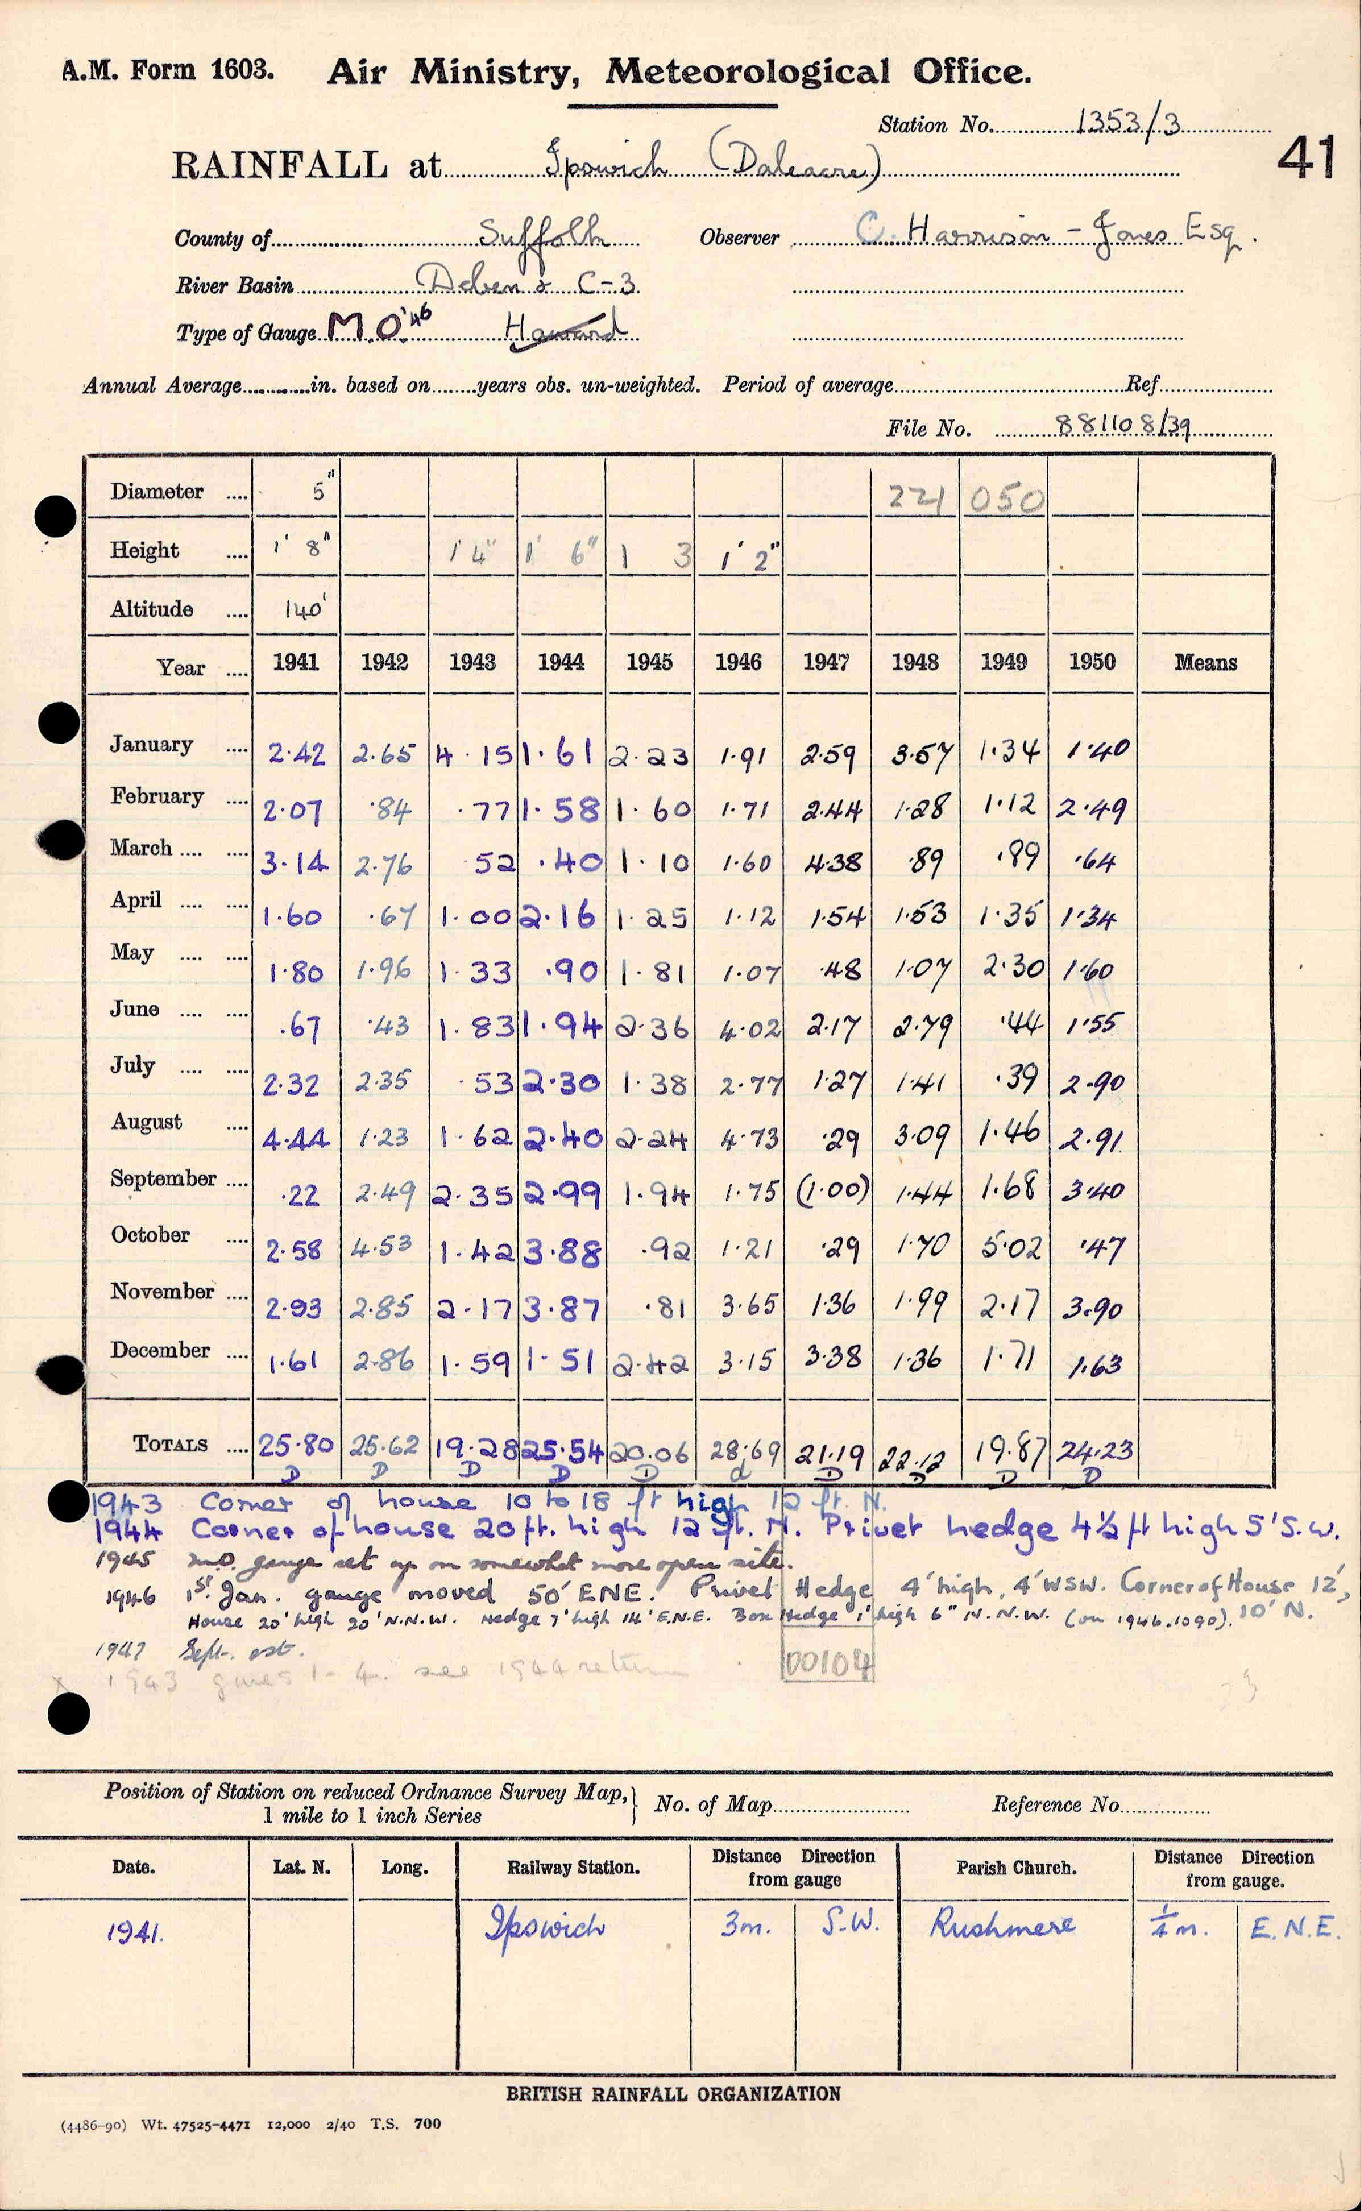 A.M. Form 1603. Air Ministry, Meteorological Office.
Station No. 1353/3
41
RAINFALL at Ipswich (Daleacre)
County of Suffolk Observer C. Harrison - Jones Esq.
River Basin Deben & C-3
Type of Gauge M.O. '46 Howard
Annual Average in. based on years obs. un-weighted. Period of average Ref
File No. 881108/39
Diameter .... 5" 221 050
Height .... 1' 8" 1' 4" 1' 6" 1 3 1' 2"
Altitude .... 140'
Year .... 1941 1942 1943 1944 1945 1946 1947 1948 1949 1950 Means
January .... 2.42 2.65 4.15 1.61 2.23 1.91 2.59 3.57 1.34 1.40
February .... 2.07 .84 .77 1.58 1.60 1.71 2.44 1.28 1.12 2.49
March .... .... 3.14 2.76 52 .40 1.10 1.60 4.38 .89 .89 .64
April .... .... 1.60 .67 1.00 2.16 1.25 1.12 1.54 1.53 1.35 1.34
May .... .... 1.80 1.96 1.33 .90 1.81 1.07 .48 1.07 2.30 1.60
June .... .... .67 .43 1.83 1.94 2.36 4.02 2.17 2.79 .44 1.55
July .... .... 2.32 2.35 .53 2.30 1.38 2.77 1.27 1.41 .39 2.90
August .... 4.44 1.23 1.62 2.40 2.24 4.73 .29 3.09 1.46 2.91
September .... .22 2.49 2.35 2.99 1.94 1.75 (1.00) 1.44 1.68 3.40
October .... 2.58 4.53 1.42 3.88 .92 1.21 .29 1.70 5.02 .47
November .... 2.93 2.85 2.17 3.87 .81 3.65 1.36 1.99 2.17 3.90
December .... 1.61 2.86 1.59 1.51 2.42 3.15 3.38 1.36 1.71 1.63
TOTALS .... 25.80 25.62 19.28 25.54 20.06 28.69 21.19 22.12 19.87 24.23
D D D D D d D D D D
1943 Corner of house 10 to 18 ft high 12 ft. N.
1944 Corner of house 20 ft. high 12 ft. N. Privet hedge 4½ ft high 5' S.W.
1945 M.O. gauge set up on somewhat more open site.
1946 1st Jan. gauge moved 50' ENE. Privet Hedge 4' high, 4' WSW. Corner of House 12',
House 20' high 20' N.N.W. Hedge 7' high 14' E.N.E. Box Hedge 1' high 6" N.N.W. (on 1946.1090). 10' N.
1947 Sept. est.
00104
x 1943 gives 1-4. see 1944 return
Position of Station on reduced Ordnance Survey Map, 1 mile to 1 inch Series } No. of Map Reference No
Date. Lat. N. Long. Railway Station. Distance Direction from gauge Parish Church. Distance Direction from gauge.
1941. Ipswich 3m. S.W. Rushmere ¼ m. E.N.E.
BRITISH RAINFALL ORGANIZATION
(4486-90) Wt. 47525-4471 12,000 2/40 T.S. 700